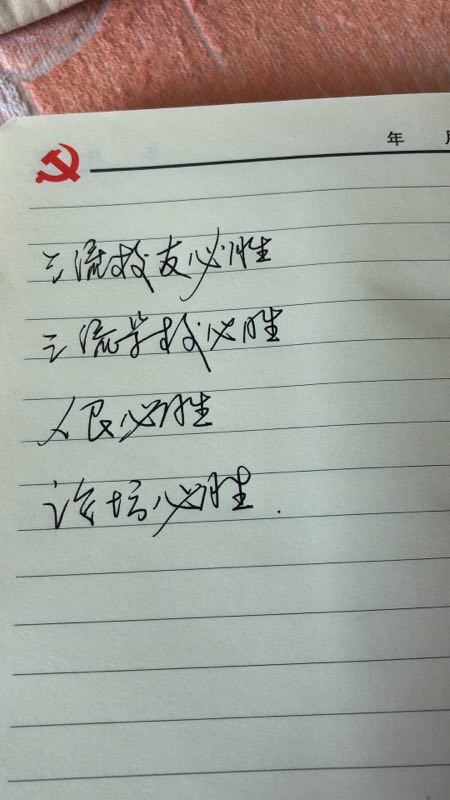 年 月
三流技友必胜
三流学校必胜
人民必胜
论坛必胜.